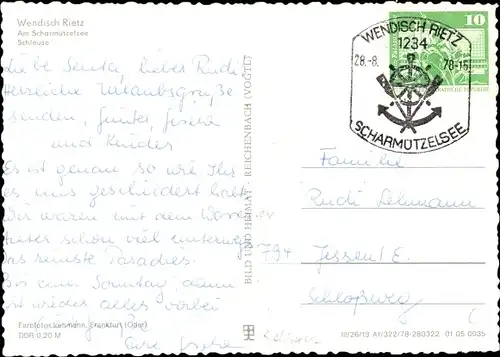 Wendisch Rietz
Am Scharmützelsee
Schleuse
Liebe Senta, lieber Rudi
Herzliche Urlaubsgrüße
senden, Günter, Gisela
und Kinder
Es ist genau so wie Ihr
es uns geschildert habt.
Wir waren mit dem
schon viel unterwegs
das reinste Paradies.
Bis zum Sonntag, dann
ist wieder alles vorbei
Eure Gisela
Farbfotos: Lehmann, Frankfurt (Oder)
DDR 0,20 M
BILD UND HEIMAT REICHENBACH (VOGTL)
10
WENDISCH RIETZ
1234
28.-8. 78-16
SCHARMÜTZELSEE
Familie
Rudi Lehmann
794 Jessen/E.
Schloßweg
III/26/13 A1/322/78-280322 01 05 0035